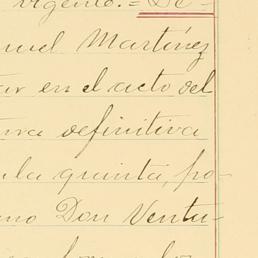 urgente.= De-
uel Martínez
ar en el acto del
tura definitiva
la quinta, po-
no Don Ventu-